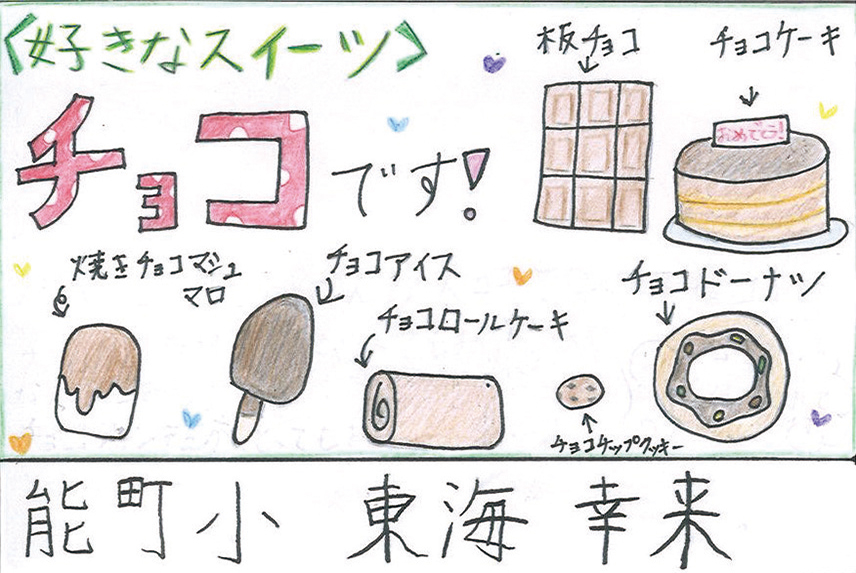 〈好きなスイーツ〉
チョコです!
板チョコ
チョコケーキ
おめでとう!
焼きチョコマシュ
マロ
チョコアイス
チョコロールケーキ
チョコチップクッキー
チョコドーナツ
能町小 東海 幸来